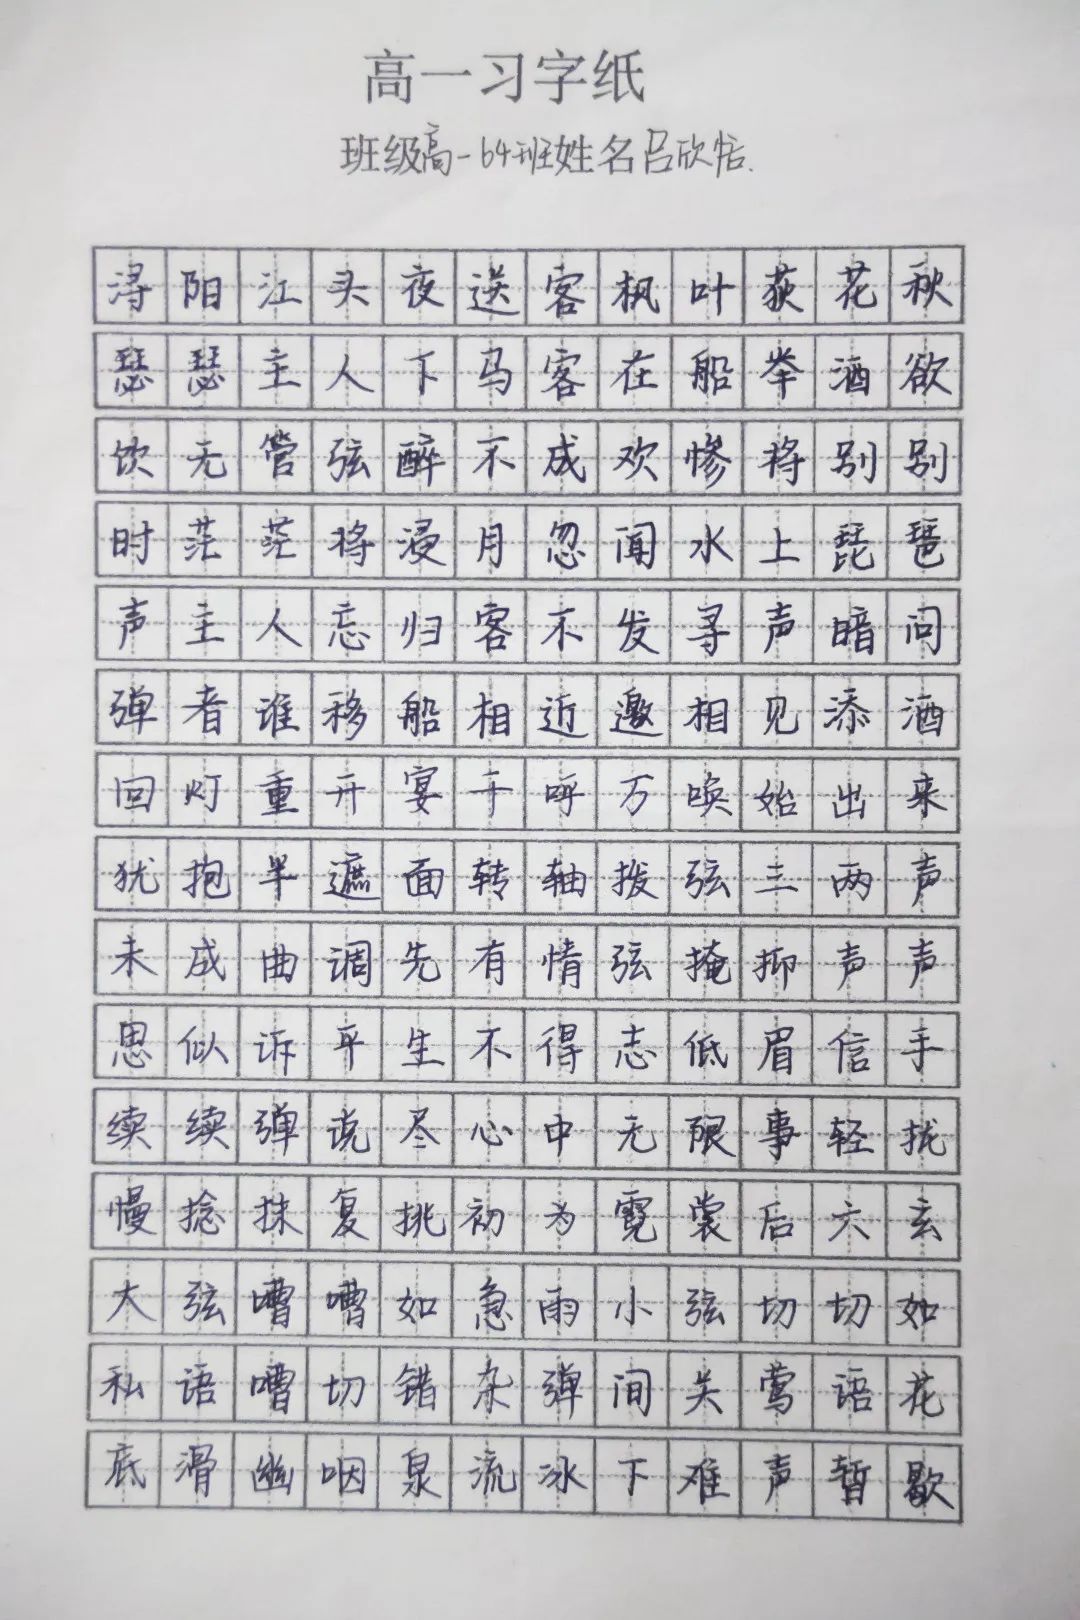 高一习字纸
班级高一64班姓名吕欣恬.
浔阳江头夜送客枫叶荻花秋
瑟瑟主人下马客在船举酒欲
饮无管弦醉不成欢惨将别别
时茫茫将浸月忽闻水上琵琶
声主人忘归客不发寻声暗问
弹者谁移船相近邀相见添酒
回灯重开宴千呼万唤始出来
犹抱半遮面转轴拨弦三两声
未成曲调先有情弦掩抑声声
思似诉平生不得志低眉信手
续续弹说尽心中无限事轻拢
慢捻抹复挑初为霓裳后六玄
大弦嘈嘈如急雨小弦切切如
私语嘈切错杂弹间关莺语花
底滑幽咽泉流冰下难声暂歇